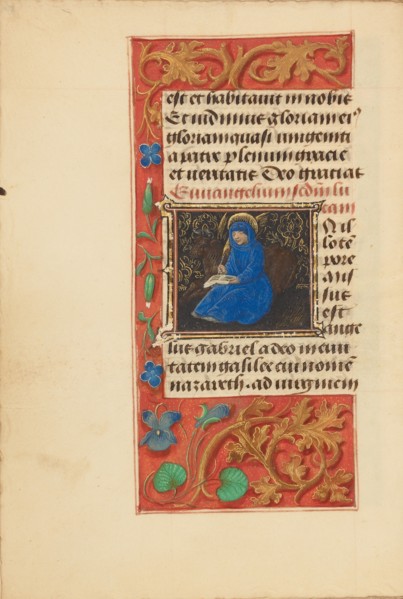 est et habitauit in nobis
Et vidimus gloriam ei⁹
gloriam quasi vnigeniti
a patre plenum gracie
et veritatis Deo gracias
Euuangelium scd̄m lu
cam
In il
lo tē
pore
Mis
sus
est
ange
lus gabriel a deo in ciui
tatem galilee cui nomē
nazareth . ad virginem